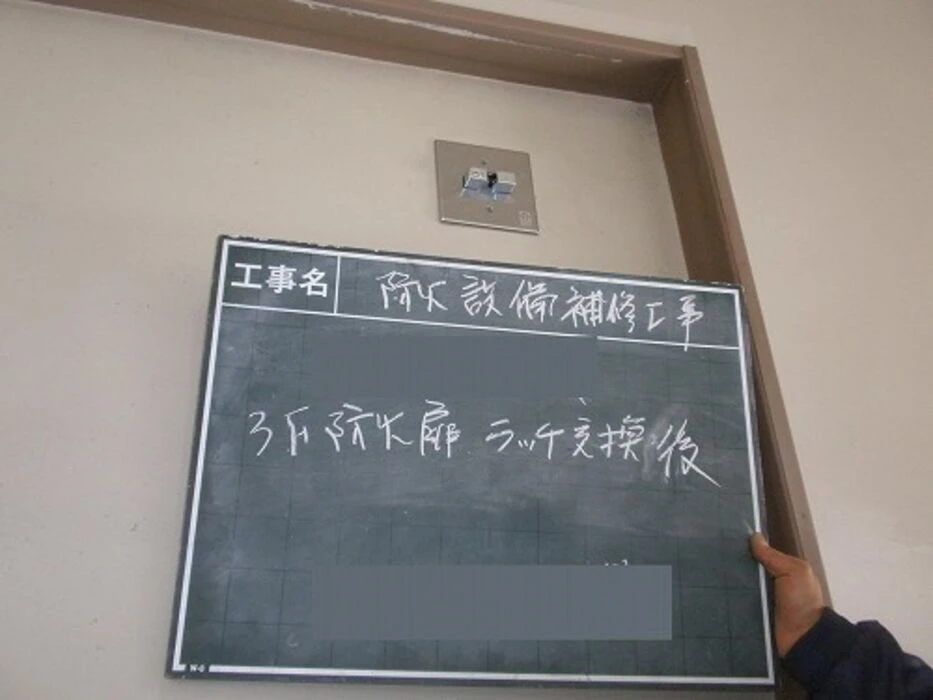 工事名 防火設備補修工事
3F防火扉 ラッチ交換後
W-6